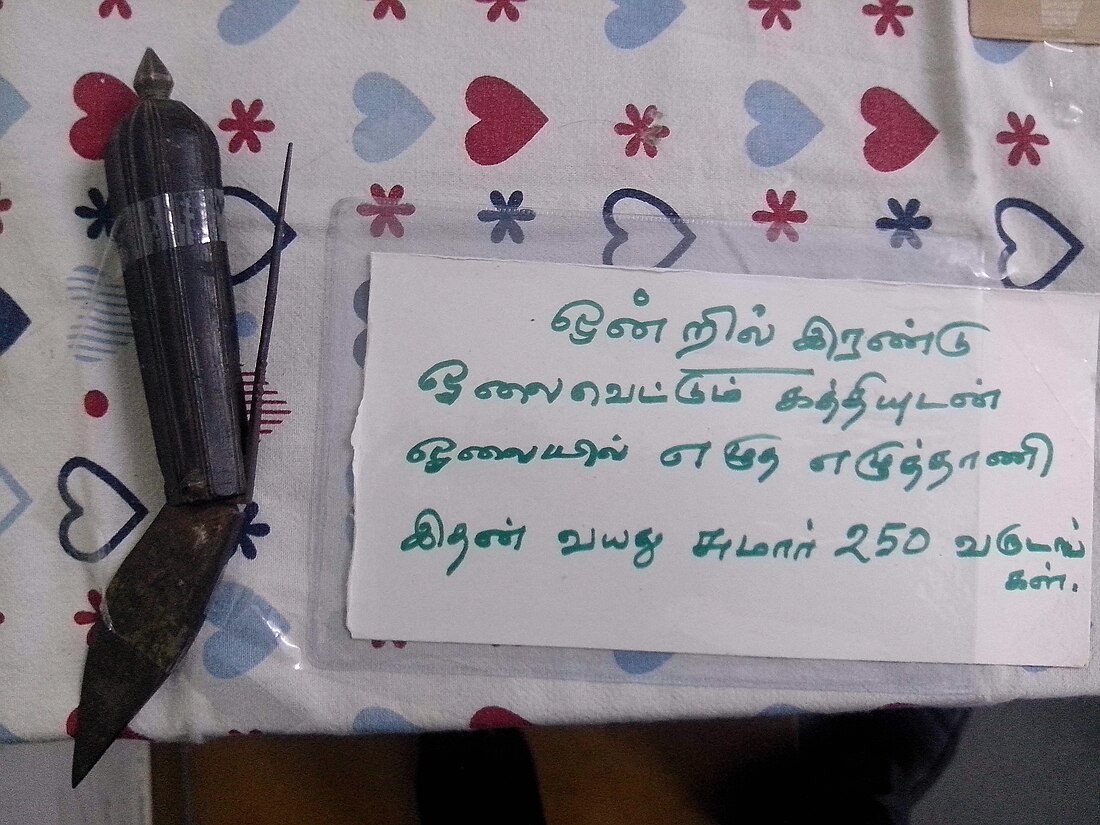 ஒன்றில் இரண்டு
ஓலைவெட்டும் கத்தியுடன்
ஓலையில் எழுத எழுத்தாணி
இதன் வயது சுமார் 250 வருடங்
கள்.